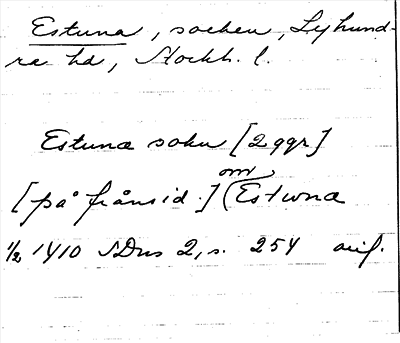 Estuna, socken, Lyhund-
ra hd, Stockh. l.
Estunæ sokn [2 ggr]
[på frånsid.] om Estwna
1/2 1410 SDns 2, s. 254 avf.